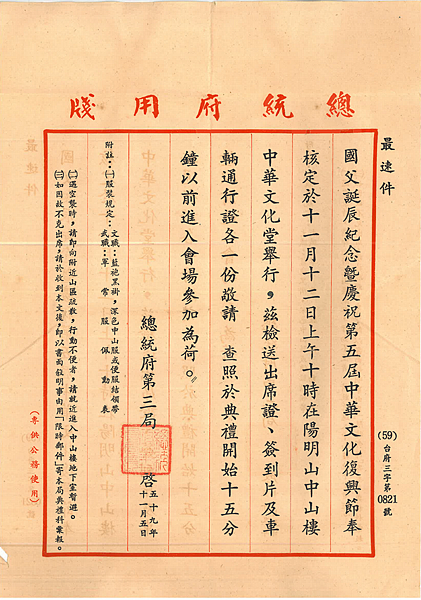 總統府用牋
最速件
(59)台府三字第0821號
國父誕辰紀念暨慶祝第五屆中華文化復興節奉
核定於十一月十二日上午十時在陽明山中山樓
中華文化堂舉行，茲檢送出席證、簽到片及車
輛通行證各一份敬請　查照於典禮開始十五分
鐘以前進入會場參加為荷。
總統府第三局　啓
五十九年
十一月五日
附註：㈠服裝規定：
文職：藍袍黑褂，深色中山服或便服結領帶
武職：軍常服佩勳表
㈡遇空襲時，請即向附近山區疏散，行動不便者，請就近進入中山樓地下室暫避。
㈢如因故不克出席，請於收到本文後，即以書面敘明事由用「限時郵件」寄本局典禮科彙報。
（專供公務使用）